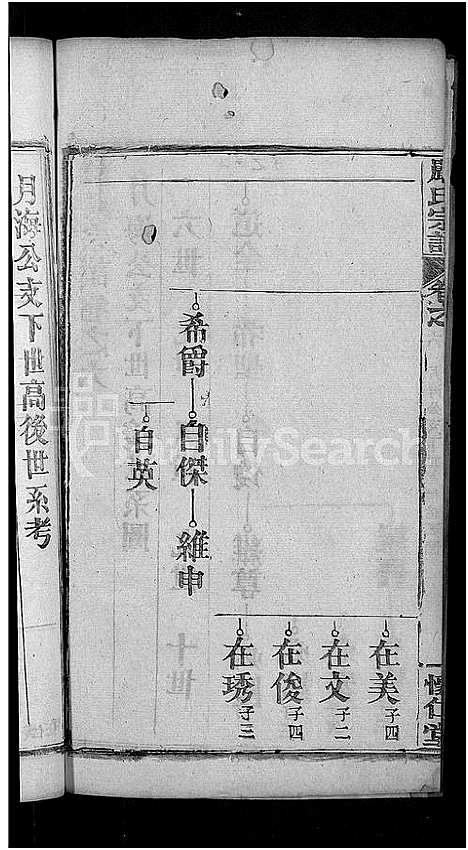 氏宗譜
卷
懷仁堂
在美 子四
在文 子二
在俊 子四
在琇 子三
希爵 自傑 維申
自英
月海公支下世高後世系考
FamilySearch